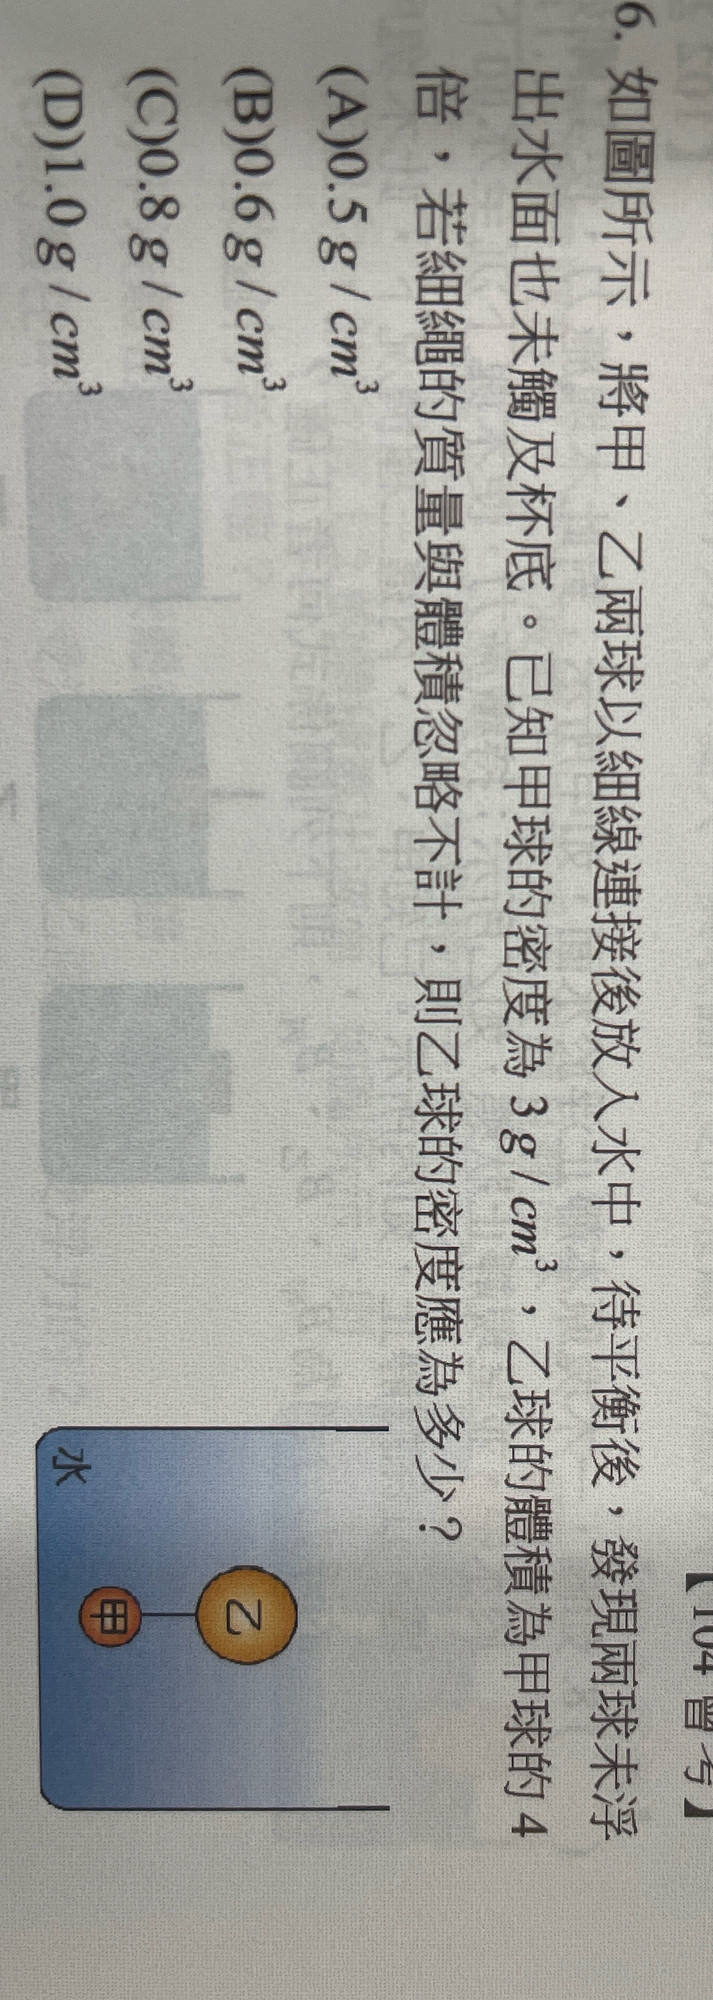 6. 如圖所示，將甲、乙兩球以細線連接後放入水中，待平衡後，發現兩球未浮
出水面也未觸及杯底。已知甲球的密度為 3 g / cm³，乙球的體積為甲球的 4
倍，若細繩的質量與體積忽略不計，則乙球的密度應為多少？
(A)0.5 g / cm³
(B)0.6 g / cm³
(C)0.8 g / cm³
(D)1.0 g / cm³
乙
甲
水